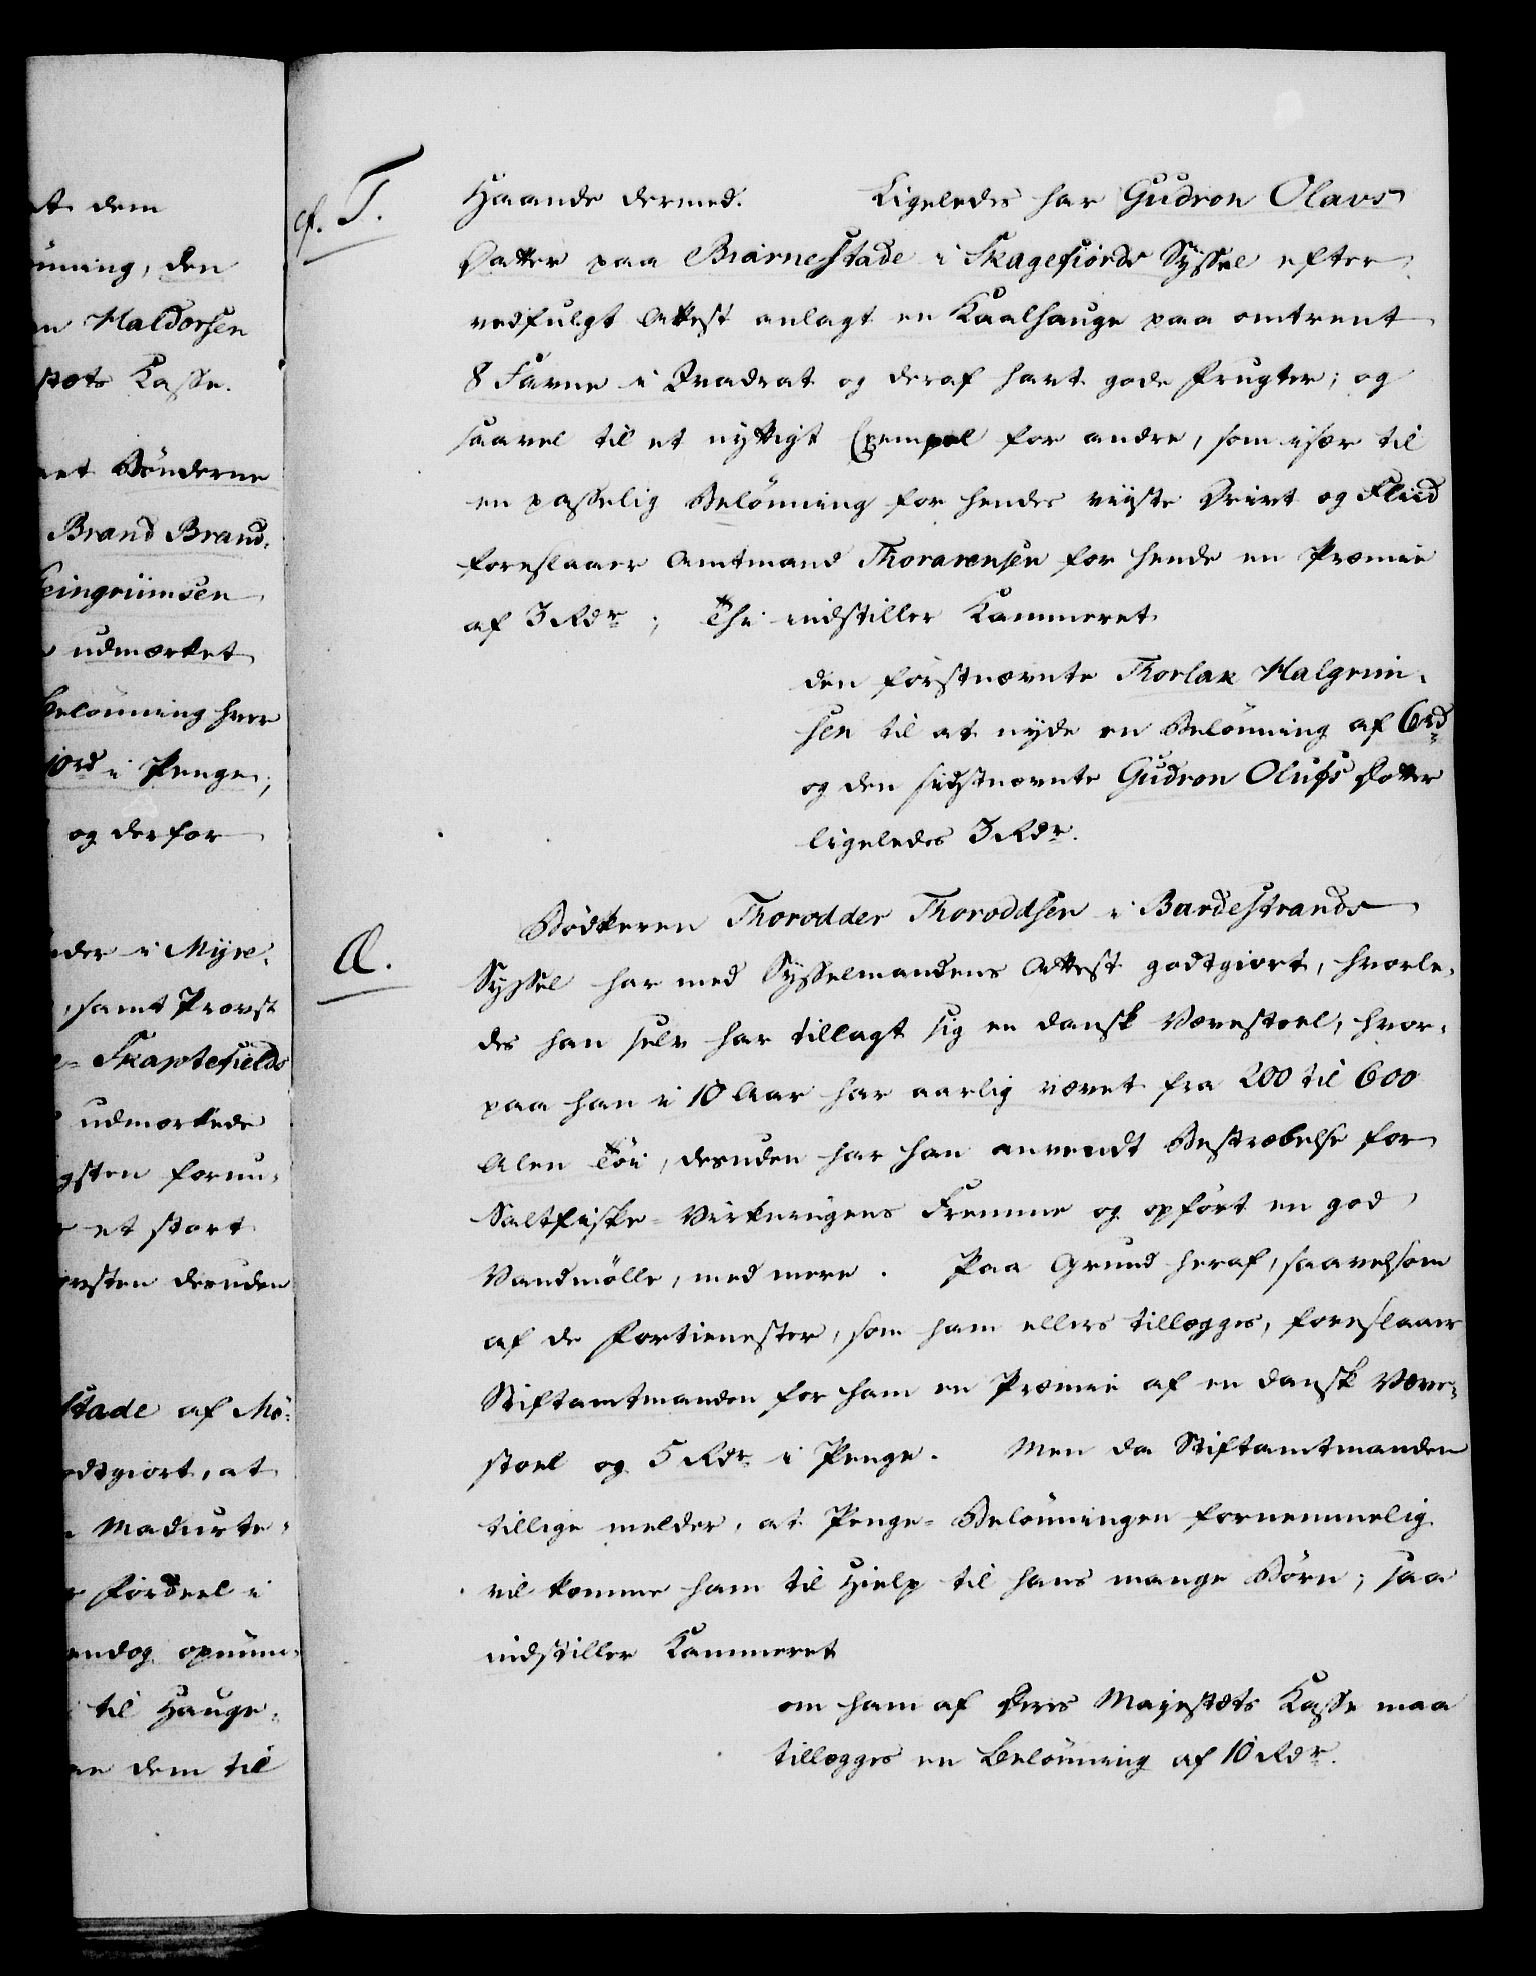 et dem
ønning, den
en Haldorsen
stæts Kasse.
net Bønderne
Brand Brand-
Steingriimsen
udmærket
Belønning hver
10rd i Penge,
og derfor
nder i Myre-
, samt Provst
e= Skaptefields
udmærkede
gsten forun-
et stort
ovsten desuden
stade af Mø-
odtgiort, at
Madurte-
Fordeel i
endog opmun-
til Hauge-
dem til
cf. T.
Haande dermed. Ligeledes har Gudron Olavs
Datter paa Biarnestade i Skagefiords Syssel efter
vedfulgt Attest anlagt en Kaalhauge paa omtrent
8 Favne i Qvadrat og deraf havt gode Frugter; og
saavel til et nyttigt Exempel for andre, som især til
en passelig Belønning for hendes viiste Drivt og Fliid
foreslaaer Amtmand Thorarensen for hende en Præmie
af 3 Rdr; Thi indstiller Kammeret
den førstnævnte Thorlak Halgrim-
sen til at nyde en Belønning af 6rd
og den sidstnævnte Gudron Olufs Dotter
ligeledes 3 Rdr.
Æ.
Bødkeren Thorodder Thoroddsen i Bardestrands
Syssel har med Sysselmandens Attest godtgiort, hvorle-
des han selv har tillagt sig en dansk Vævestoel, hvor-
paa han i 10 Aar har aarlig vævet fra 200 til 600
Alen Tøi, desuden har han anvendt Bestræbelse for
Saltfiske-Virkningens Fremme og opført en god
Vandmølle, med mere. Paa Grund heraf, saavelsom
af de Fortienester, som ham ellers tillægges, foreslaaer
Stiftamtmanden for ham en Præmie af en dansk Væve-
stoel og 5 Rdr i Penge. Men da Stiftamtmanden
tillige melder, at Penge-Belønningen fornemmelig
vil komme ham til Hielp til hans mange Børn; saa
indstiller Kammeret
om ham af Deres Majestæts Kasse maa
tillægges en Belønning af 10 Rdr.